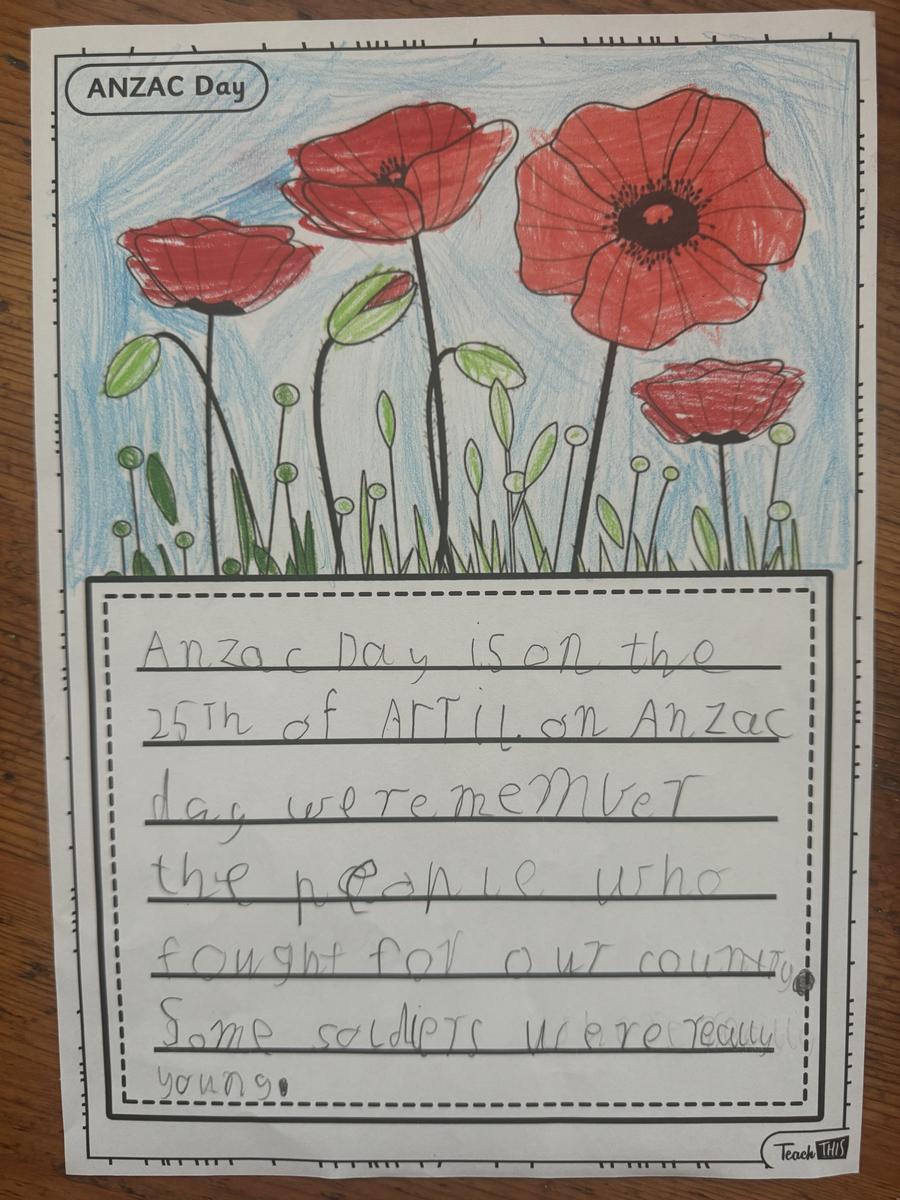 ANZAC Day
Anzac Day is on the
25Th of ArTil. on Anzac
day we rememver
the peaple who
fought for our country.
Some soldiers were really
young.
Teach THIS